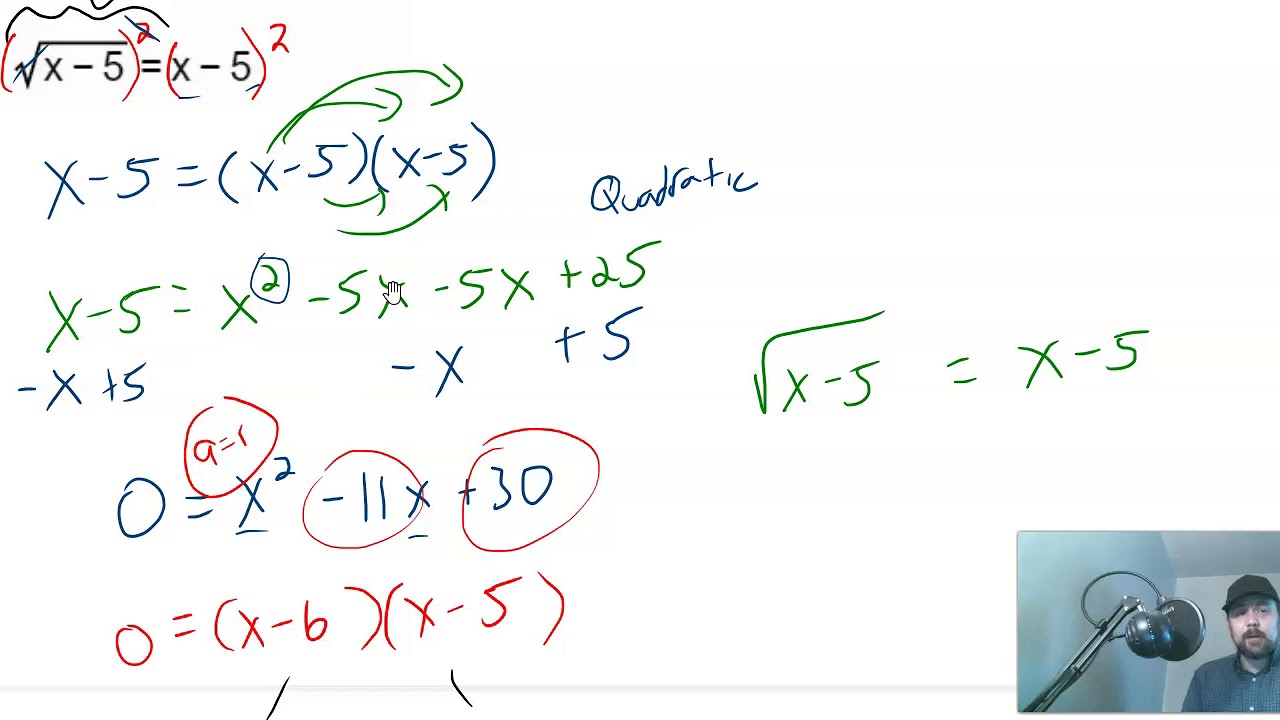 (√x − 5)² = (x − 5)²
x − 5 = (x − 5)(x − 5)
Quadratic
x − 5 = x² − 5x − 5x + 25
− x + 5 − x + 5
√x − 5 = x − 5
a = 1
0 = x² − 11x + 30
0 = (x − 6)(x − 5)